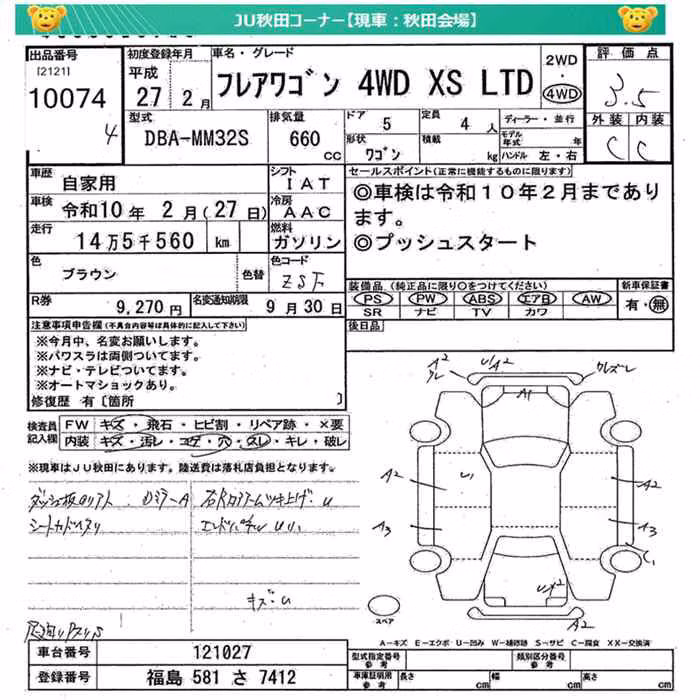 JU秋田コーナー【現車：秋田会場】
出品番号
[2121]
10074
4
初度登録年月
平成
27 2月
車名・グレード
フレアワゴン 4WD XS LTD
2WD
・
4WD
評価点
3.5
外装 内装
C C
型式
DBA-MM32S
排気量
660
cc
ドア
5
定員
4人
形状
ワゴン
積載
kg
ディーラー・並行
モデル年式 年
ハンドル 左・右
車歴
自家用
シフト
IAT
車検
令和10年 2月(27日)
冷房
AAC
走行
14万5千560 km
燃料
ガソリン
色
ブラウン
色替
色コード
ZSF
R券
9,270円
名変通知期限
9月30日
セールスポイント(正常に機能するものに限ります)
◎車検は令和10年2月まであり
ます。
◎プッシュスタート
装備品(純正品に限り○をつけてください)
PS PW ABS エアB AW
SR ナビ TV カワ
新車保証書
有・無
後日品
注意事項申告欄(不具合内容等は具体的に記入して下さい)
※今月中、名変お願いします。
※パワスラは両側ついてます。
※ナビ・テレビついてます。
※オートマショックあり。
修復歴 有〔箇所 〕
検査員
記入欄
FW キズ・飛石・ヒビ割・リペア跡・×要
内装 キズ・汚レ・コゲ・穴・スレ・キレ・破レ
※現車はJU秋田にあります。陸送費は落札店負担となります。
キズ・U
A2
U/A2
A1
A2
U1
A2
A3
A3
A2
スペア
A-キズ E-エクボ U-凹み W-補修跡 S-サビ C-腐食 XX-交換済
車台番号
121027
登録番号
福島 581 さ 7412
型式指定番号
参考
類別区分番号
参考
車庫証明用
参考
長さ cm
幅 cm
高さ cm